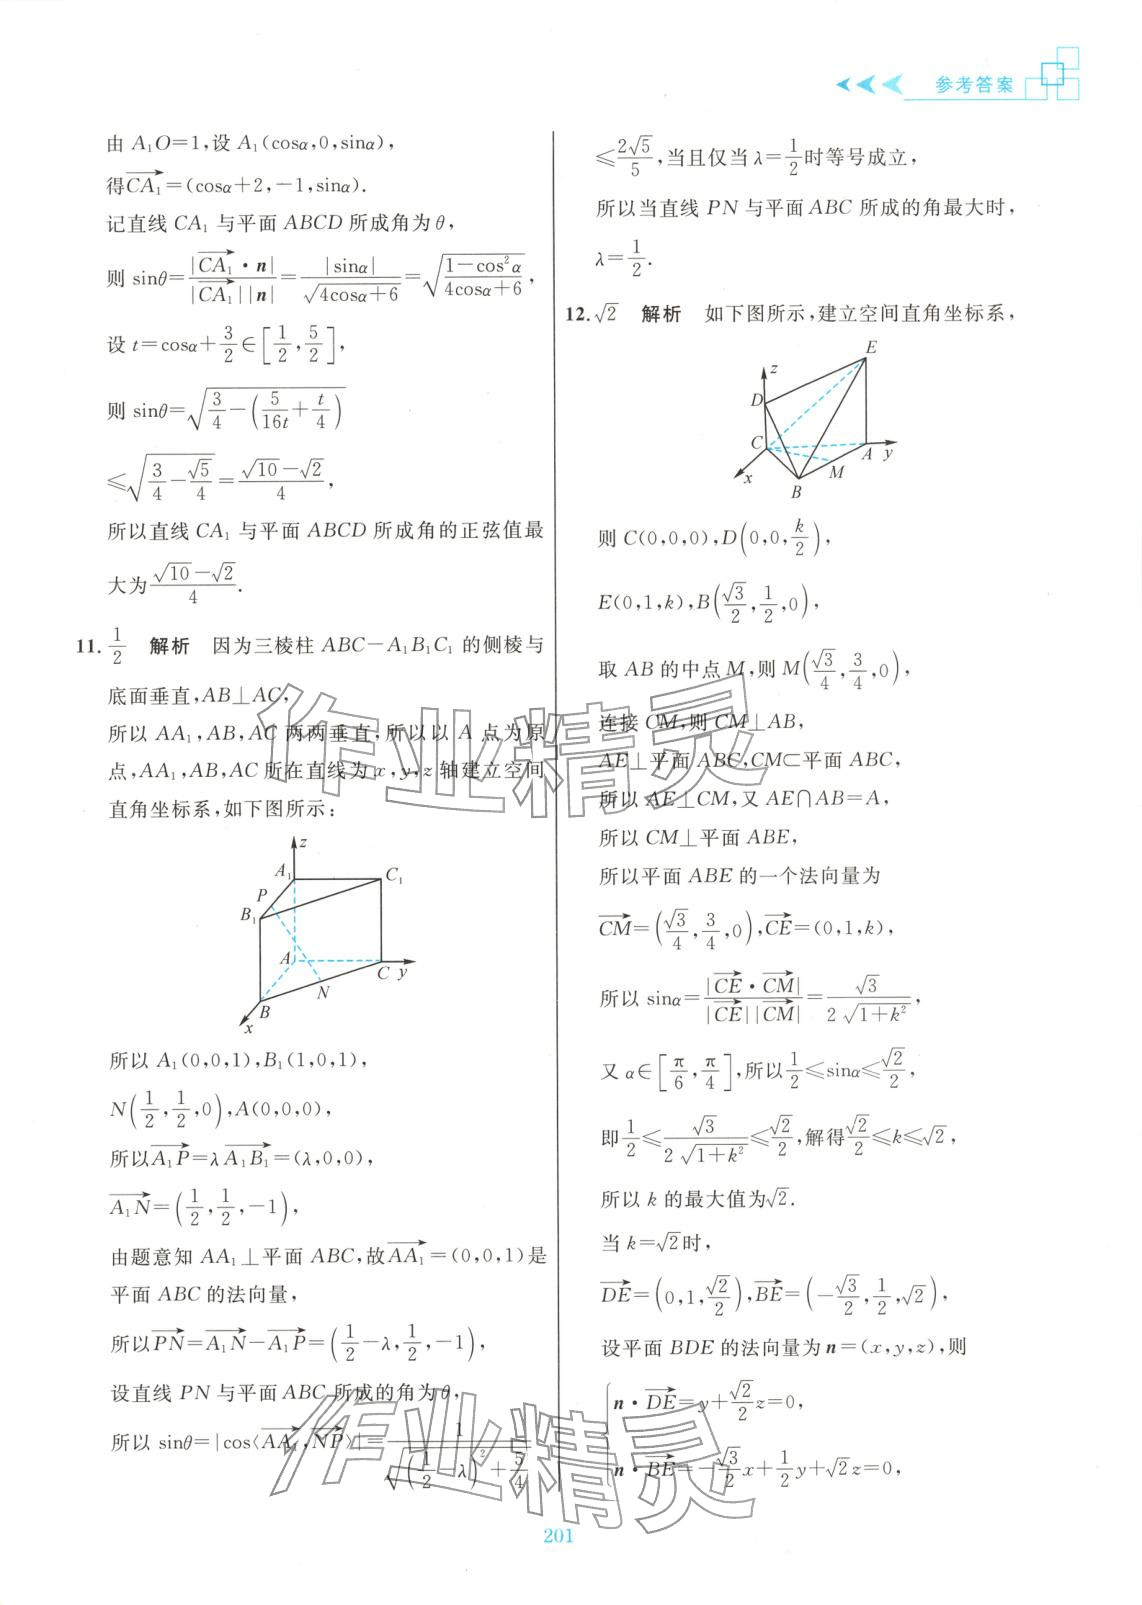 参考答案
由 A₁O=1,设 A₁(cosα,0,sinα),
得$\overrightarrow{CA_1}$=(cosα+2,-1,sinα).
记直线 CA₁ 与平面 ABCD 所成角为θ,
则 sinθ=$\frac{|\overrightarrow{CA_1}·n|}{|\overrightarrow{CA_1}||n|}$=$\frac{|sinα|}{\sqrt{4cosα+6}}$=$\sqrt{\frac{1-cos^2α}{4cosα+6}}$,
设 t=cosα+$\frac{3}{2}$∈$[\frac{1}{2},\frac{5}{2}]$,
则 sinθ=$\sqrt{\frac{3}{4}-(\frac{5}{16t}+\frac{t}{4})}$
≤$\sqrt{\frac{3}{4}-\frac{\sqrt{5}}{4}}$=$\frac{\sqrt{10}-\sqrt{2}}{4}$,
所以直线 CA₁ 与平面 ABCD 所成角的正弦值最
大为$\frac{\sqrt{10}-\sqrt{2}}{4}$.
11. $\frac{1}{2}$ 解析 因为三棱柱 ABC-A₁B₁C₁ 的侧棱与
底面垂直,AB⊥AC,
所以 AA₁,AB,AC 两两垂直,所以以 A 点为原
点,AA₁,AB,AC 所在直线为 x,y,z 轴建立空间
直角坐标系,如下图所示:
z
A₁
C₁
P
B₁
A
C
y
N
B
x
所以 A₁(0,0,1),B₁(1,0,1),
N$(\frac{1}{2},\frac{1}{2},0)$,A(0,0,0),
所以$\overrightarrow{A_1P}$=λ$\overrightarrow{A_1B_1}$=(λ,0,0),
$\overrightarrow{A_1N}$=$(\frac{1}{2},\frac{1}{2},-1)$,
由题意知 AA₁⊥平面 ABC,故$\overrightarrow{AA_1}$=(0,0,1)是
平面 ABC 的法向量,
所以$\overrightarrow{PN}$=$\overrightarrow{A_1N}$-$\overrightarrow{A_1P}$=$(\frac{1}{2}-λ,\frac{1}{2},-1)$,
设直线 PN 与平面 ABC 所成的角为θ,
所以 sinθ=|cos⟨$\overrightarrow{AA_1}$,$\overrightarrow{NP}$⟩|=$\frac{1}{\sqrt{(\frac{1}{2}-λ)^2+\frac{5}{4}}}$
≤$\frac{2\sqrt{5}}{5}$,当且仅当 λ=$\frac{1}{2}$时等号成立,
所以当直线 PN 与平面 ABC 所成的角最大时,
λ=$\frac{1}{2}$.
12. $\sqrt{2}$ 解析 如下图所示,建立空间直角坐标系,
E
z
D
C
A
y
M
x
B
则 C(0,0,0),D$(0,0,\frac{k}{2})$,
E(0,1,k),B$(\frac{\sqrt{3}}{2},\frac{1}{2},0)$,
取 AB 的中点 M,则 M$(\frac{\sqrt{3}}{4},\frac{3}{4},0)$,
连接 CM,则 CM⊥AB,
AE⊥平面 ABC,CM⊂平面 ABC,
所以 AE⊥CM,又 AE∩AB=A,
所以 CM⊥平面 ABE,
所以平面 ABE 的一个法向量为
$\overrightarrow{CM}$=$(\frac{\sqrt{3}}{4},\frac{3}{4},0)$,$\overrightarrow{CE}$=(0,1,k),
所以 sinα=$\frac{|\overrightarrow{CE}·\overrightarrow{CM}|}{|\overrightarrow{CE}||\overrightarrow{CM}|}$=$\frac{\sqrt{3}}{2\sqrt{1+k^2}}$,
又 α∈$[\frac{π}{6},\frac{π}{4}]$,所以$\frac{1}{2}$≤sinα≤$\frac{\sqrt{2}}{2}$,
即$\frac{1}{2}$≤$\frac{\sqrt{3}}{2\sqrt{1+k^2}}$≤$\frac{\sqrt{2}}{2}$,解得$\frac{\sqrt{2}}{2}$≤k≤$\sqrt{2}$,
所以 k 的最大值为$\sqrt{2}$.
当 k=$\sqrt{2}$时,
$\overrightarrow{DE}$=$(0,1,\frac{\sqrt{2}}{2})$,$\overrightarrow{BE}$=$(-\frac{\sqrt{3}}{2},\frac{1}{2},\sqrt{2})$,
设平面 BDE 的法向量为 n=(x,y,z),则
n·$\overrightarrow{DE}$=y+$\frac{\sqrt{2}}{2}$z=0,
n·$\overrightarrow{BE}$=-$\frac{\sqrt{3}}{2}$x+$\frac{1}{2}$y+$\sqrt{2}$z=0,
作业精灵
作业精灵
201